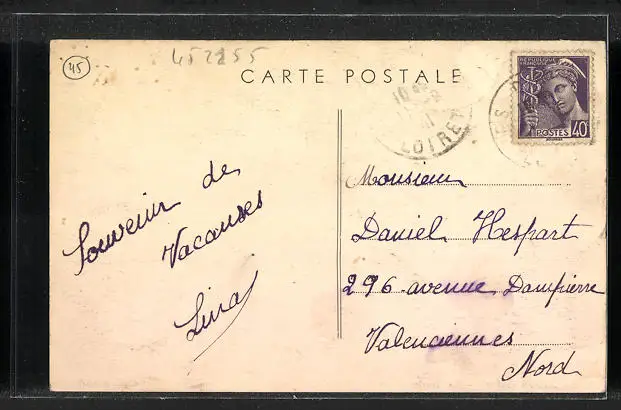 45
452255
CARTE POSTALE
REPUBLIQUE
FRANÇAISE
POSTES 40
LOIRET
Souvenir de
Vacances
Lina
Monsieur
Daniel Hespart
296 avenue Dampierre
Valenciennes
Nord